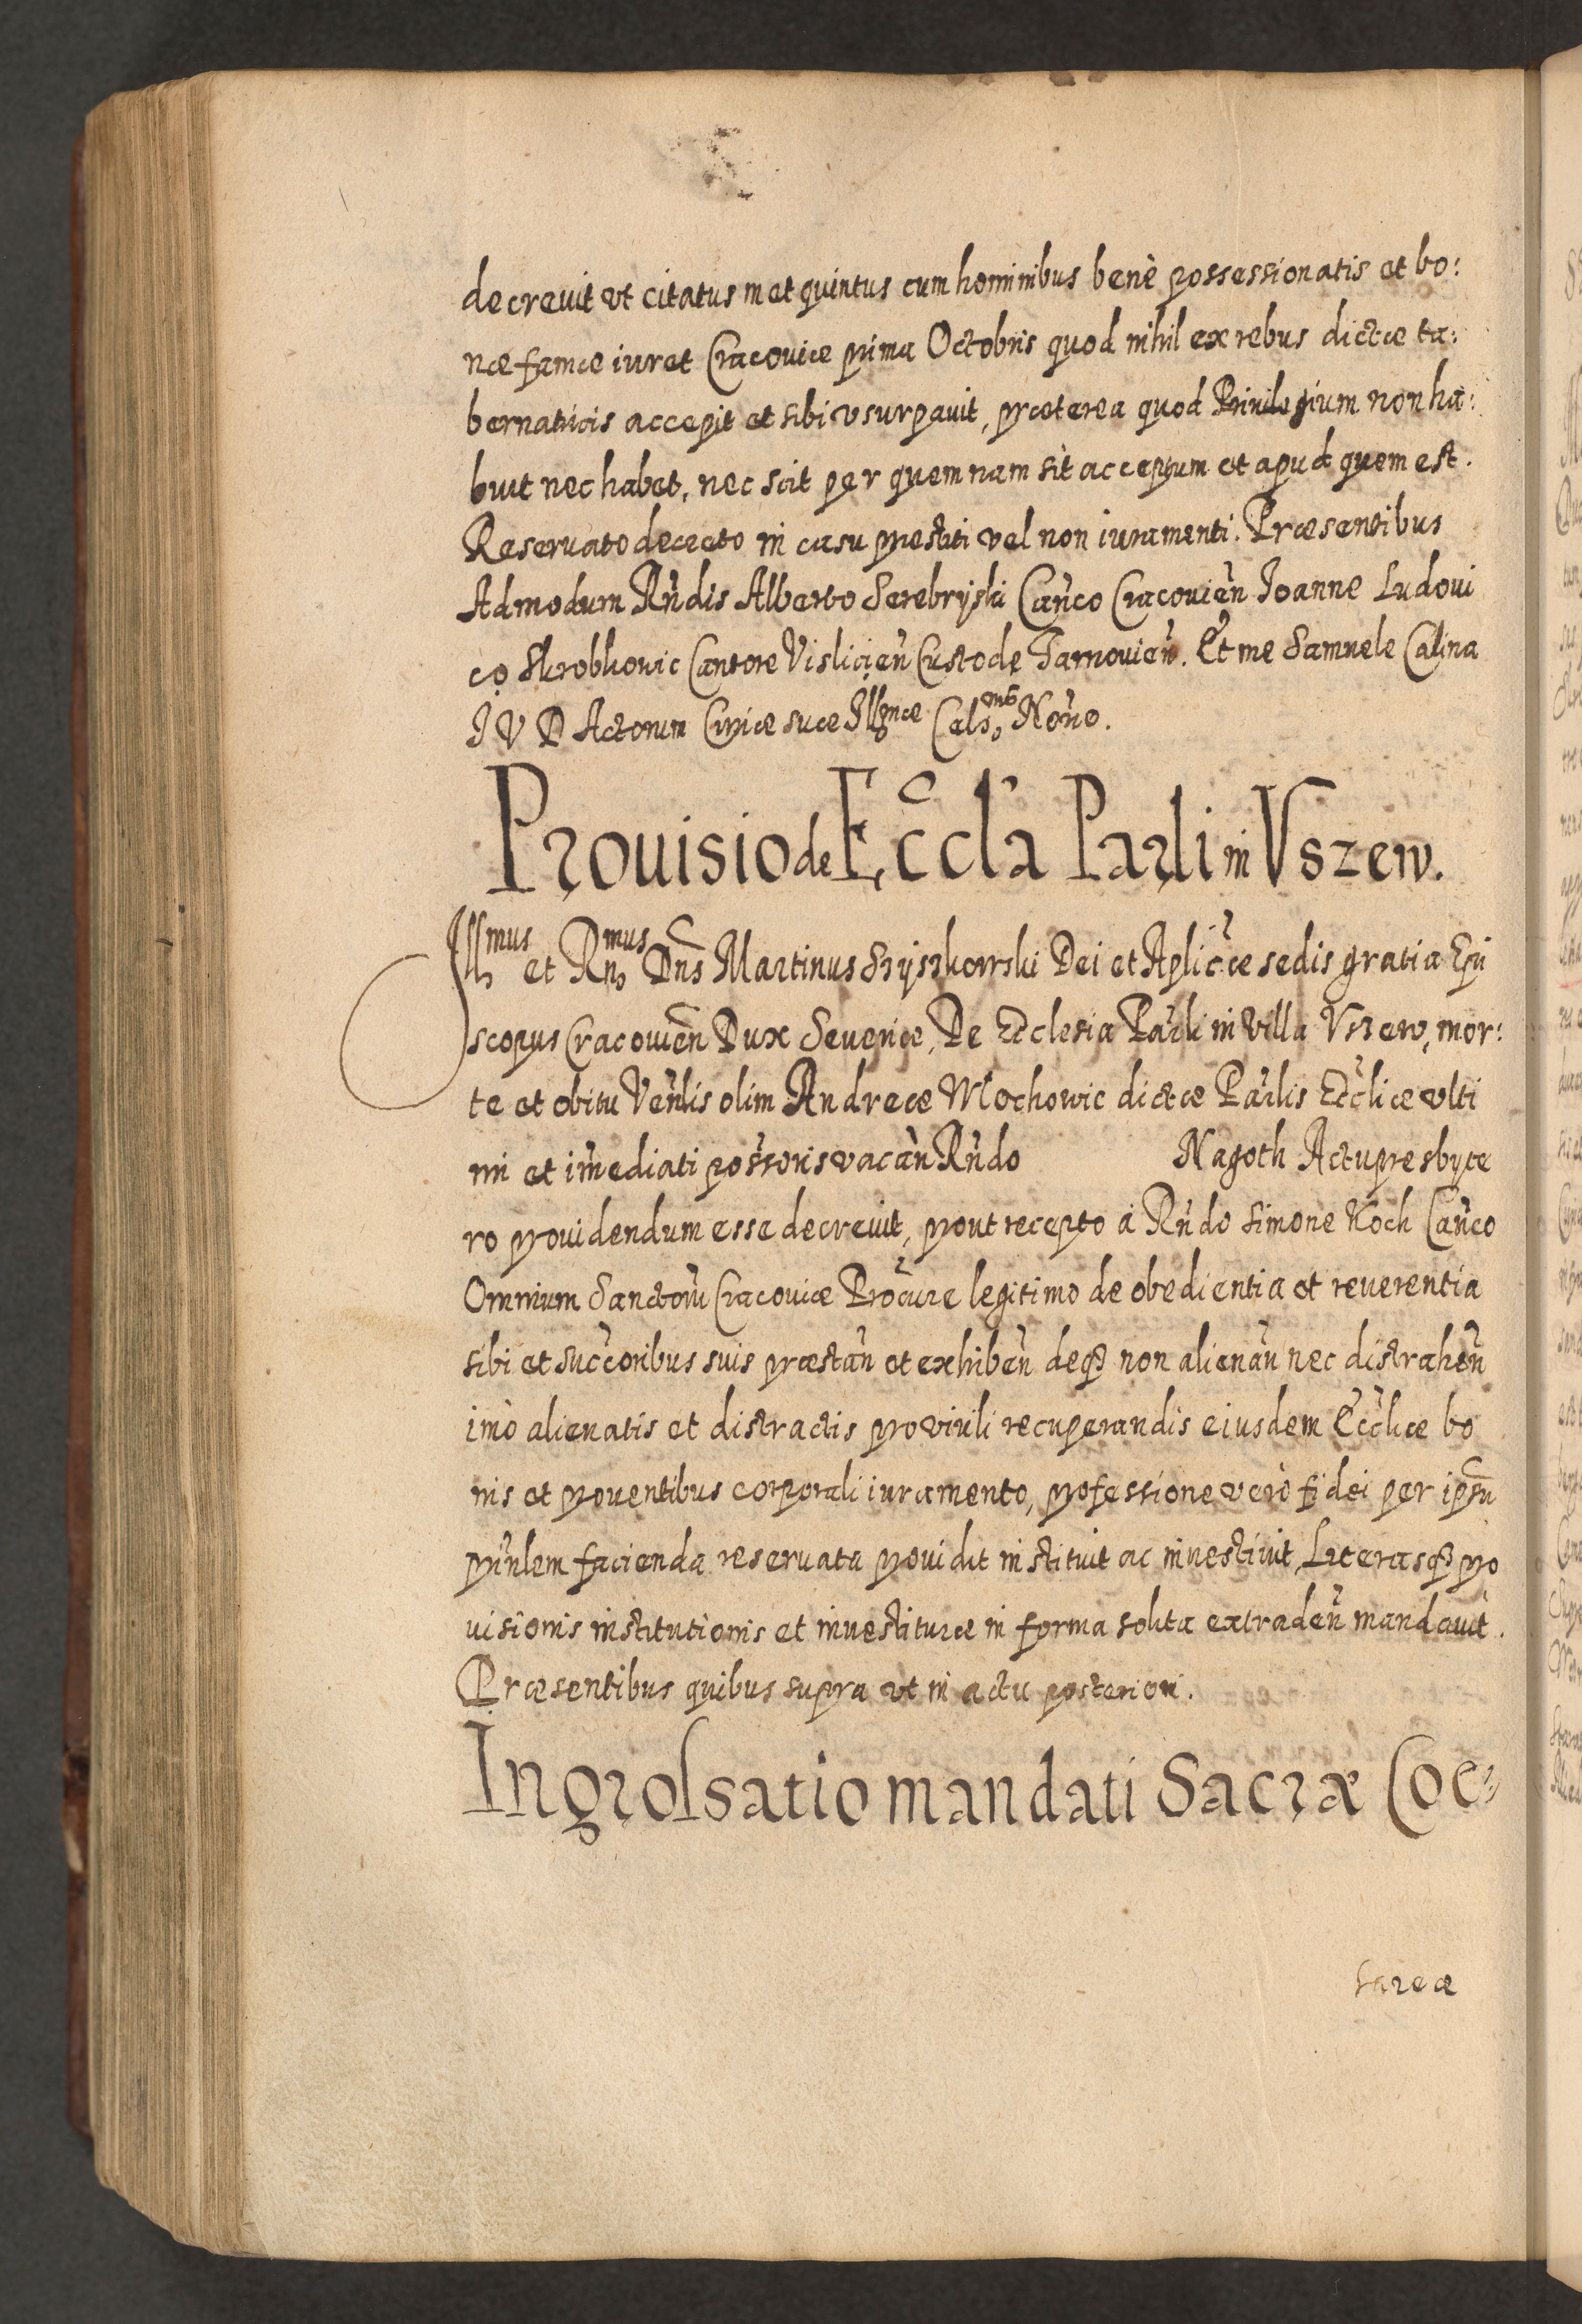 decreuit vt citatus met quintus cum hominibus benè possessionatis et bo:
næ famæ iuret Cracouiæ prima Octobris quod nihil ex rebus dictæ ta:
bernatricis accepit et sibi vsurpauit, præterea quod Priuilegium non ha:
buit nec habet, nec scit per quemnam sit acceptum et apud quem est.
Reseruato decreto in casu prestiti vel non iuramenti. Præsentibus
Admodum Rńdis Alberto Serebryski Cańco Cracouień Ioanne Ludoui
co Skrobkowic Cantore Vislicień Custode Tarnouień. Et me Samuele Calina
I V D Actorum Curiæ suæ Illgnæ Cels.mæ Noṙio.
Prouisio de Eccl'a Parli in Vszew.
Illmus et Rnmus Dns Martinus Szyszkowski Dei et Aplicæ sedis gratia Epi
scopus Cracouien Dux Seueriæ, De Ecclesia Parli in Villa Vszew, mor:
te et obitu Venlis olim Andreæ Mochowic dictæ Parlis Ecclicæ vlti
mi et imediati possoris vacan Rńdo Nagoth Actupresbyte
ro prouidendum esse decreuit, prout recepto à Rńdo Simone Koch Cańco
Omnium Sanctoru Cracouiæ Procure legitimo de obedientia et reuerentia
sibi et succoribus suis præstan et exhiben deq3 non alienan nec distrahen
imò alienatis et distractis pro virili recuperandis eiusdem Eccliæ bo
nis et prouentibus corporali iuramento, professione verò fidei per ipsu
prinlem facienda reseruata prouidit instituit ac inuestiuit, Literasq3 pro
uisionis institutionis et inuestituræ in forma solita extraden mandauit.
Præsentibus quibus supra vt in actu posteriori.
Ingrossatio mandati Sacræ Coe:
sareæ